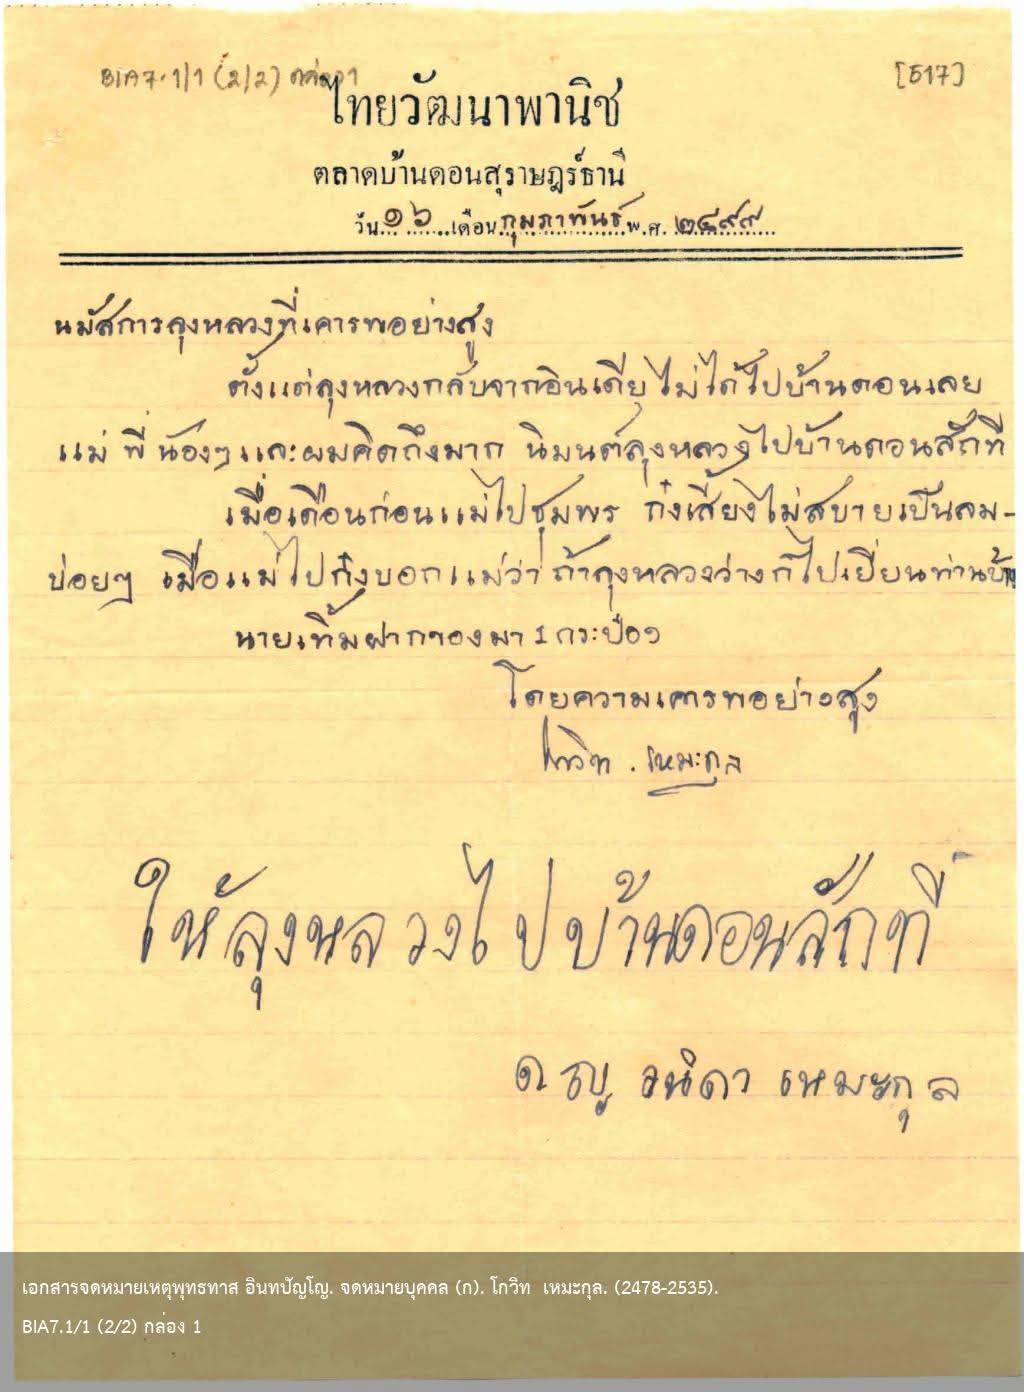 BIA7.1/1 (2/2) กล่อง1
[517]
ไทยวัฒนาพานิช
ตลาดบ้านดอนสุราษฎร์ธานี
วัน ๑๖ เดือน กุมภาพันธ์ พ.ศ. ๒๔๙๙
นมัสการลุงหลวงที่เคารพอย่างสูง
ตั้งแต่ลุงหลวงกลับจากอินเดีย ไม่ได้ไปบ้านดอนเลย
แม่ พี่ น้องๆ และผมคิดถึงมาก นิมนต์ลุงหลวงไปบ้านดอนสักที
เมื่อเดือนก่อนแม่ไปชุมพร ก๋งเสี้ยงไม่สบายเป็นลม-
บ่อยๆ เมื่อแม่ไปก๋งบอกแม่ว่า ถ้าลุงหลวงว่างก็ไปเยี่ยนท่านบ้าง
นายเทิ้มฝากของมา 1 กระป๋อง
โดยความเคารพอย่างสูง
โกวิท . เหมะกุล
ให้ลุงหลวงไปบ้านดอนสักที
ด ญ วนิดา เหมะกุล
เอกสารจดหมายเหตุพุทธทาส อินทปัญโญ. จดหมายบุคคล (ก). โกวิท เหมะกุล. (2478-2535).
BIA7.1/1 (2/2) กล่อง 1